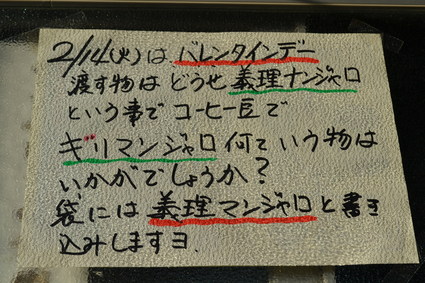 2/14(火)は バレンタインデー
渡す物は どうせ 義理ナンジャロ
という事で コーヒー豆で
ギリマンジャロ 何ていう物は
いかがでしょうか?
袋には 義理マンジャロ と 書き
込みしますヨ.